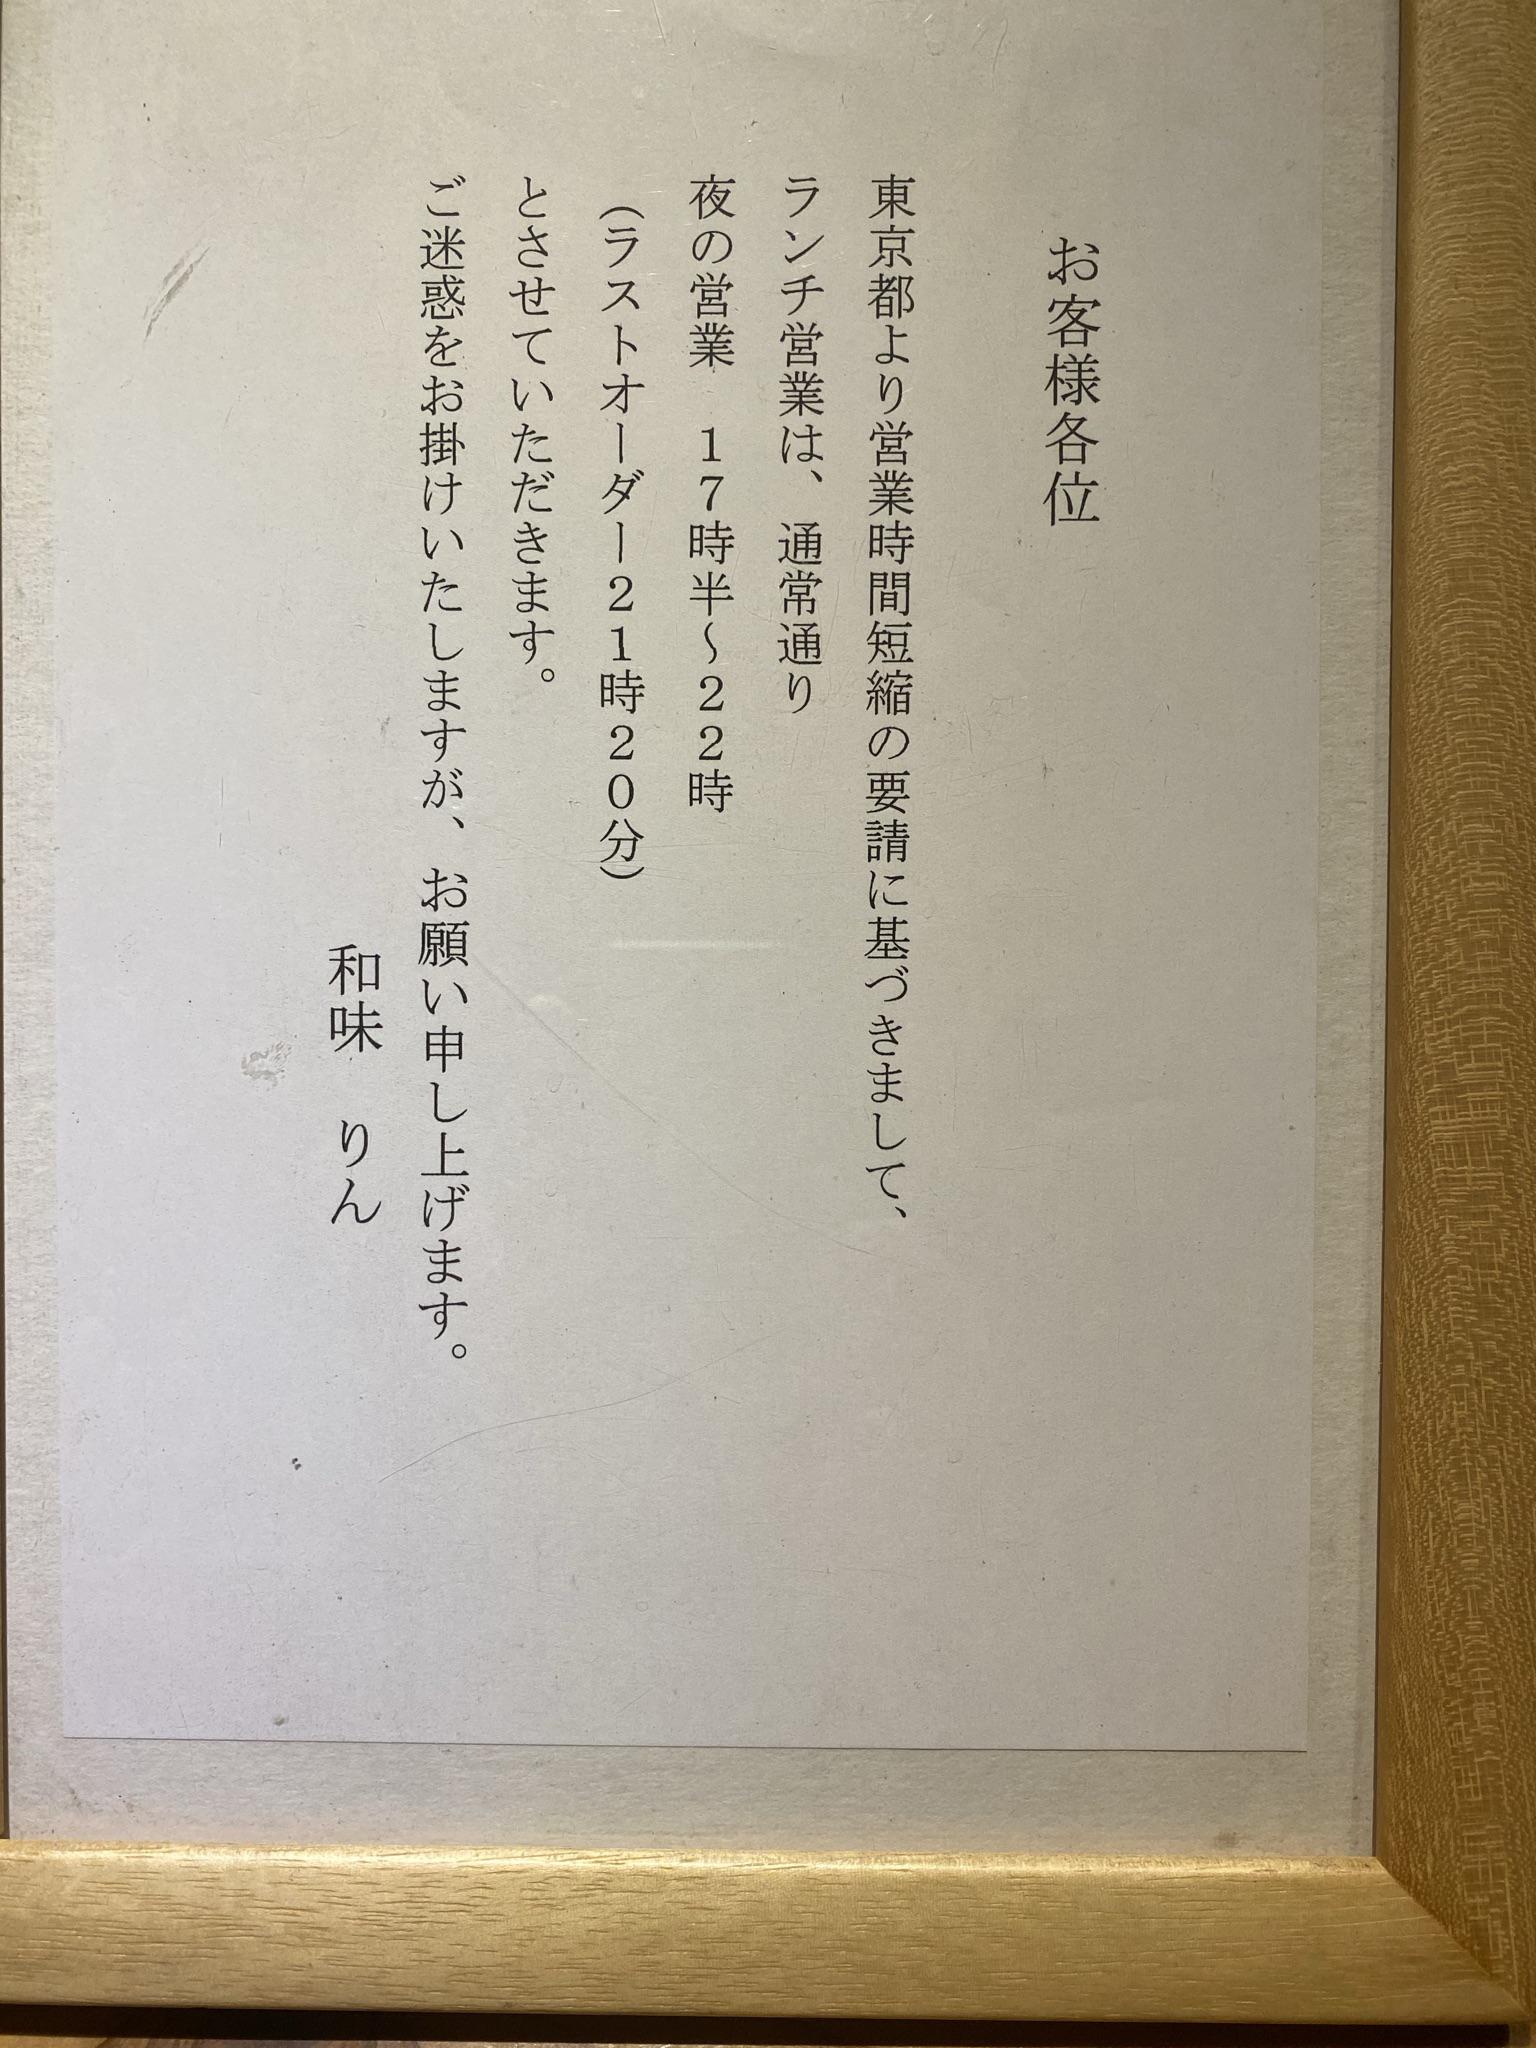 お客様各位
東京都より営業時間短縮の要請に基づきまして、
ランチ営業は、通常通り
夜の営業　１７時半～２２時
（ラストオーダー２１時２０分）
とさせていただきます。
ご迷惑をお掛けいたしますが、お願い申し上げます。
和味　りん